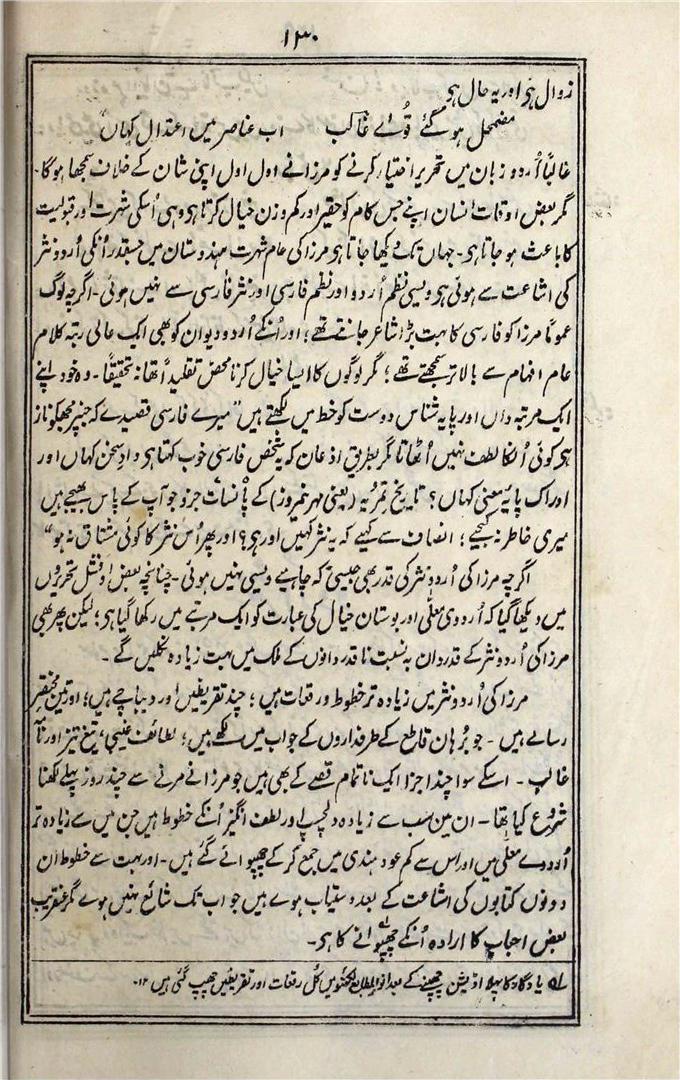 ۱۳۰
زوال ہی اور یہ حال ہی
مضمحل ہو گئے قُوےٰ غالب اب عناصر میں اعتدال کہاں
غالبًا اُردو زبان میں تحریر اختیار کرنے کو مرزا نے اول اول اپنی شان کے خلاف سمجھا ہوگا۔
مگر بعض اوقات انسان اپنے جس کام کو حقیر اور کم وزن خیال کرتا ہی وہی اُسکی شہرت اور قبولیت
کا باعث ہو جاتا ہی۔ جہاں تک دیکھا جاتا ہی مرزا کی عام شہرت ہندوستان میں جسقدر اُنکی اُردو نثر
کی اشاعت سے ہوئی ہی ویسی نظم اُردو اور نظم فارسی اور نثر فارسی سے نہیں ہوئی۔ اگرچہ لوگ
عمومًا مرزا کو فارسی کا بہت بڑا شاعر جانتے تھے؛ اور اُنکے اُردو دیوان کو بھی ایک عالی رتبہ کلام
عام افہام سے بالاتر سمجھتے تھے؛ مگر لوگوں کا ایسا خیال کرنا محض تقلیدًا تھا نہ تحقیقًا۔ وہ خود اپنے
ایک مرتبہ داں اور پایہ شناس دوست کو خط میں لکھتے ہیں "میرے فارسی قصیدے کہ جنپر مجھکو ناز
ہی کوئی اُنکا لطف نہیں اُٹھاتا مگر بطریق اذعان کہ یہ شخص فارسی خوب کہتا ہی داد سخن کہاں اور
ادراک پایۂ معنی کہاں؟ تاریخ تیموریہ (یعنی مہر نیمروز) کے پانسات جزو جو آپ کے پاس بھیجے ہیں
میری خاطر نہ کیجیے؛ انصاف سے کہیے کہ یہ نثر کہیں اور ہی؟ اور پھر اُس نثر کا کوئی مشتاق نہ ہو"
اگرچہ مرزا کی اُردو نثر کی قدر بھی جیسی کہ چاہیے ویسی نہیں ہوئی۔ چنانچہ بعض تحریروں
میں دیکھا گیا کہ اُردوی معلّٰی اور بوستان خیال کی عبارت کو ایک مرتبے میں رکھا گیا ہی؛ لیکن پھر بھی
مرزا کی اُردو نثر کے قدردان بہ نسبت ناقدردانوں کے ملک میں بہت زیادہ نکلیں گے۔
مرزا کی اُردو نثر میں زیادہ تر خطوط و رقعات ہیں؛ چند تقریظیں اور دیباچے ہیں؛ اور تین مختصر
رسالے ہیں۔ جو بُرہان قاطع کے طرفداروں کے جواب میں لکھے ہیں؛ لطائف غیبی، تیغ تیز اور نامۂ
غالب۔ اسکے سوا چند اجزا ایک ناتمام قصے کے بھی ہیں جو مرزا نے مرنے سے چند روز پہلے لکھنا
شروع کیا تھا۔ ان میں سب سے زیادہ دلچسپ اور لطف انگیز اُنکے خطوط ہیں جن میں سے زیادہ تر
اُردوے معلّٰی میں اور اس سے کم عود ہندی میں جمع کر کے چھپوائے گئے ہیں۔ اور بہت سے خطوط ان
دونوں کتابوں کی اشاعت کے بعد دستیاب ہوے ہیں جو اب تک شائع نہیں ہوے مگر عنقریب
بعض احباب کا ارادہ اُنکے چھپوانے کا ہی۔
لہ یادگار کا پہلا اڈیشن چھپنے کے بعد کُل رقعات اور تقریظیں چھپ گئی ہیں ۱۲۔